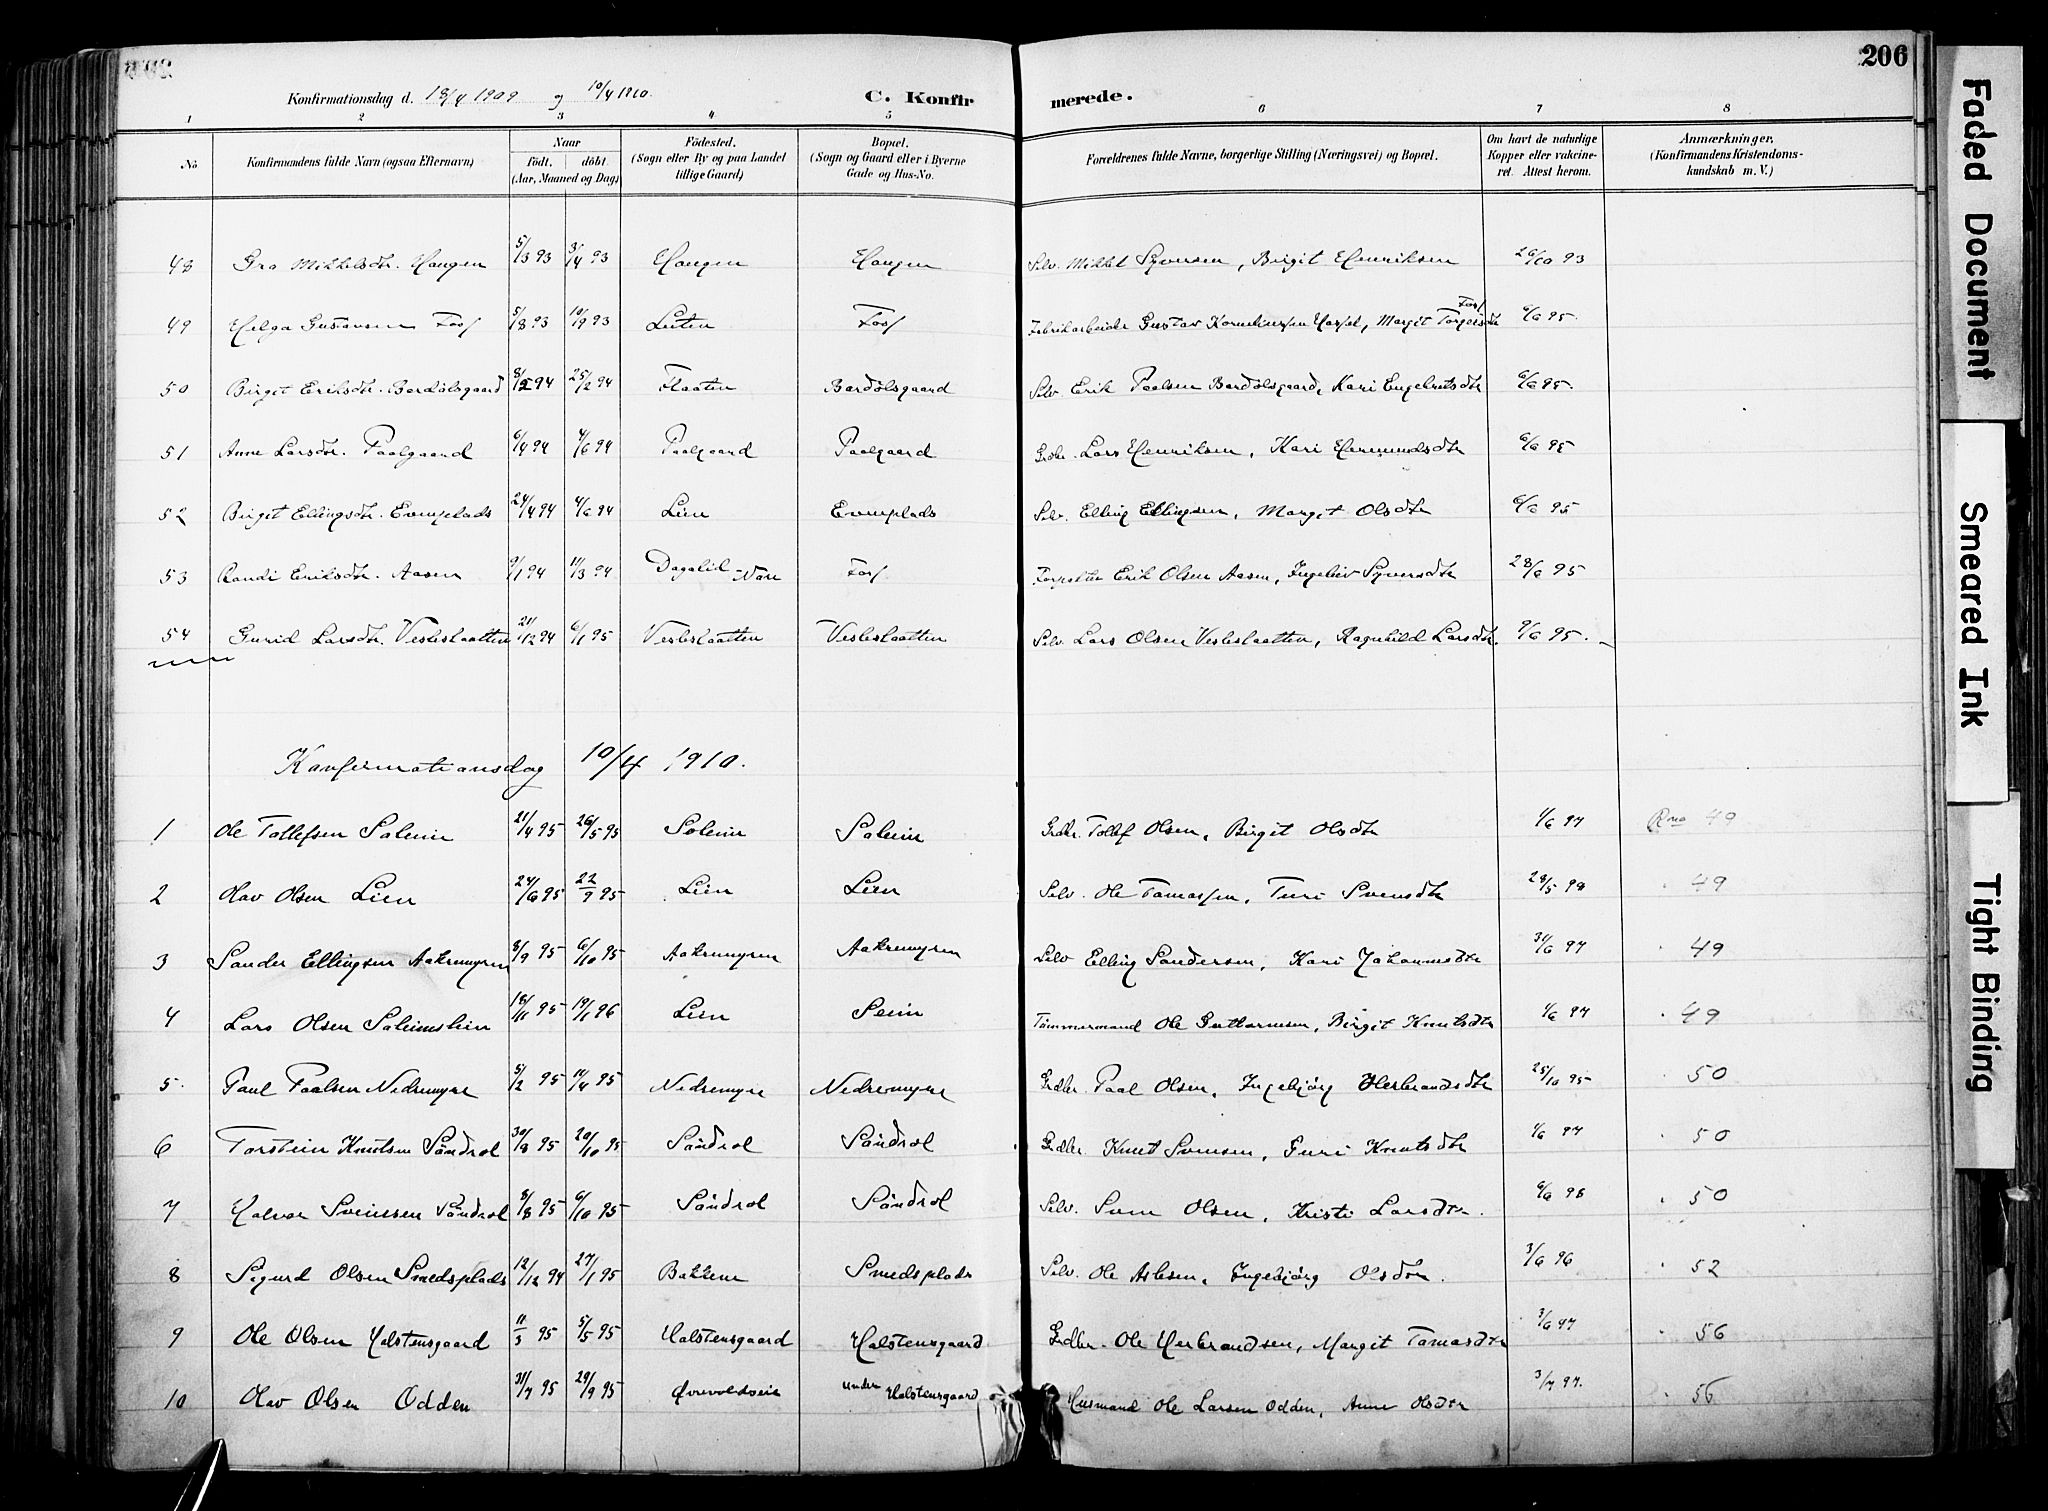 206
Konfirmationsdag d. 18/4 1909 og 10/4 1910.
C. Konfirmerede.
1 2 3 4 5 6 7 8
No
Konfirmandens fulde Navn (ogsaa Efternavn)
Naar
født, døbt
(Aar, Maaned og Dag)
Födested.
(Sogn eller By og paa Landet
tillige Gaard)
Bopæl.
(Sogn og Gaard eller i Byerne
Gade og Hus-No.
Forældrenes fulde Navne, borgerlige Stilling (Næringsvei) og Bopæl.
Om havt de naturlige
Kopper eller vakcine-
ret. Attest herom.
Anmærkninger,
(Konfirmandens Kristendoms-
kundskab m. V.)
48 Gro Mikkelsdtr. Haugen 5/3 93 3/4 93 Haugen Haugen Selv. Mikkel Syversen, Birgit Henriksen 26/10 93
49 Helga Gustavsen Fos 5/8 93 10/9 93 Fos Fabrikarbeider Gustav Korneliussen, Margit Torgersdtr Fos 6/6 95.
50 Birgit Eriksdtr. Bardølsgaard 25/2 94 Flaaten Bardølsgaard Selv. Erik Paalsen Bardølsgaard, Kari Engebretsdtr 6/6 95.
51 Anne Larsdtr. Paalgaard 6/4 94 4/6 94 Paalgaard Paalgaard Lars Henriksen, Kari Hermundsdtr 6/6 95
52 Birgit Ellingsdtr. Evenplads 24/4 94 4/6 94 Lien Evenplads Selv. Elling Ellingsen, Margit Olsdtr 6/6 95
53 Randi Eriksdtr. Aasen 9/1 94 11/3 94 Dagalid Fos Erik Olsen Aasen, Ingebor Syversdtr 28/6 95
54 Gunid Larsdtr. Vesleslaatten 21/12 94 6/1 95 Vesleslaatten Vesleslaatten Selv. Lars Olsen Vesleslaatten, Ragnhild Larsdtr. 9/6 95.
Konfirmationsdag 10/4 1910.
1 Ole Tollefsen Soleim 21/4 95 26/5 95 Soleim Soleim Grdbr. Tollef Olsen, Birgit Olsdtr 1/6 97 49
2 Olav Olsen Lien 24/6 95 22/9 95 Lien Lien Selv. Ole Tamassen, Turi Svensdtr 28/5 98 49
3 Sander Ellingsen Aakremyren 8/9 95 6/10 95 Aakremyren Aakremyren Selv Elling Sandersen, Kari Johannesdtr 49
4 Lars Olsen Soleimslien 18/11 95 19/1 96 Lien Tömmermand Ole Guttormsen, Birgit Knutsdtr 1/6 97 49
5. Paul Paalsen Nedremyre 5/2 95 Nedremyre Nedremyre Grdbr. Paal Olsen, Ingebjörg Herbrandsdtr 25/10 95 50
6 Torstein Knutsen Sändrol 30/8 95 20/10 95 Sändrol Sändrol Grdbr. Knut Svensen, Guri Knutsdtr 1/6 97 50
7 Halvor Svensen Sändrol 8/8 95 6/10 95 Sändrol Sändrol Selv. Sven Olsen, Kristi Larsdtr. 50
8 Sigurd Olsen Smedsplads 12/12 94 27/1 95 Bakken Smedsplads Selv. Ole Aslesen, Ingebjörg Olsdtr. 3/6 96 52
9 Ole Olsen Halstensgaard 11/3 95 5/5 95 Halstensgaard Halstensgaard Grdbr. Ole Herbrandsen, Margit Tamasdtr 3/6 97 56
10 Olav Olsen Odden 31/7 95 29/9 95 under Halstensgaard Husmand Ole Larsen Odden, Anne Olsdtr 3/7 97. 56
Faded Document
Smeared Ink
Tight Binding